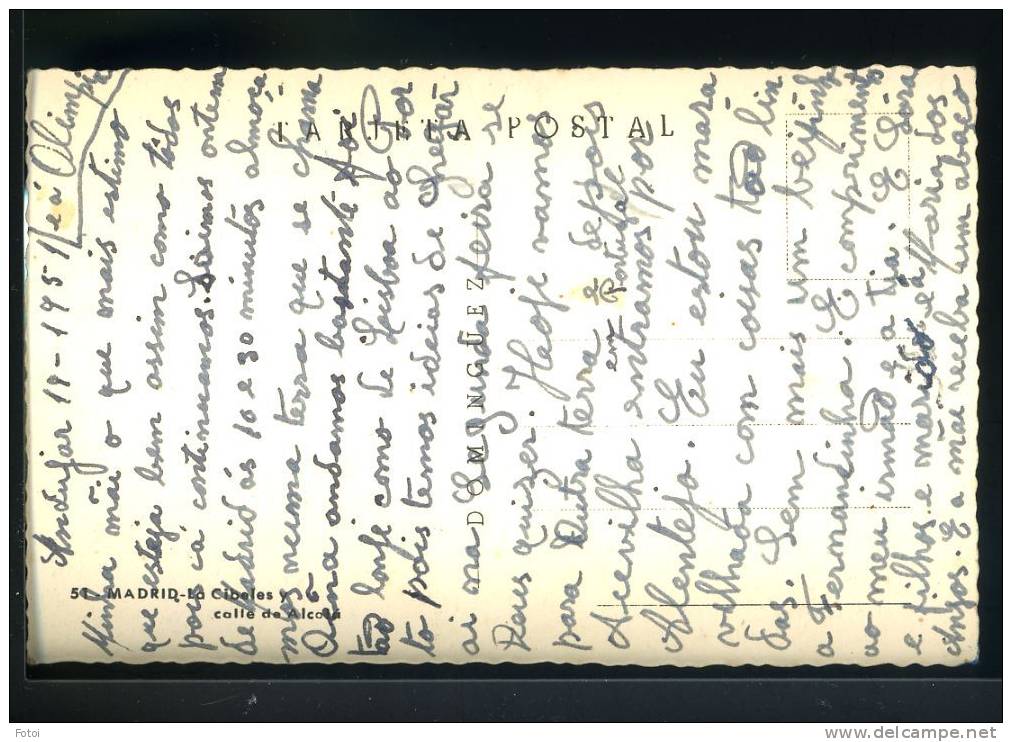 TARJETA POSTAL
DOMINGUEZ
51 - MADRID-La Cibeles y
calle de Alcalá
Andujar 19-195
Minha mãi o que mais estimo
que esteja bem assim como todos
pois cá continuamos. Saimos ontem
de Madrid ás 10 e 30 minutos almoçá
mos numa terra que se chama
Ocana andamos bastante foi
tão longe como de Lisboa ao Por
to pois temos ideias de chegar
ai na Segunda feira se
Deus quizer. Hoje vamos
para Outra terra e depois
em Portugal
a Sevilha entramos por
Alentejo. Eu estou mara
vilhada com cousas tão lin
das. Sem mais um beijinho
a Fernandinha. E comprimentos
ao meu irmão e a tia. E Dora
e filhos e marido e á Maria dos
Anjos. E a mãe receba um abraço
Fotoi
www.delcampe.net